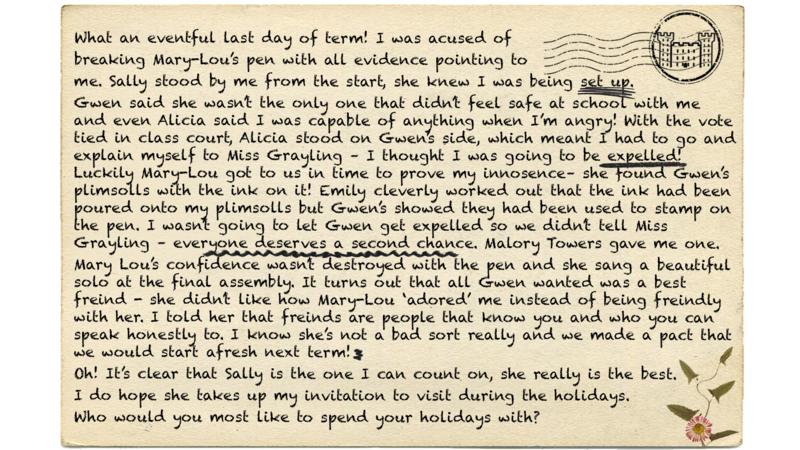 What an eventful last day of term! I was acused of
breaking Mary-Lou's pen with all evidence pointing to
me. Sally stood by me from the start, she knew I was being set up.
Gwen said she wasn't the only one that didn't feel safe at school with me
and even Alicia said I was capable of anything when I'm angry! With the vote
tied in class court, Alicia stood on Gwen's side, which meant I had to go and
explain myself to Miss Grayling - I thought I was going to be expelled!
Luckily Mary-Lou got to us in time to prove my innosence- she found Gwen's
plimsolls with the ink on it! Emily cleverly worked out that the ink had been
poured onto my plimsolls but Gwen's showed they had been used to stamp on
the pen. I wasn't going to let Gwen get expelled so we didn't tell Miss
Grayling - everyone deserves a second chance. Malory Towers gave me one.
Mary Lou's confidence wasn't destroyed with the pen and she sang a beautiful
solo at the final assembly. It turns out that all Gwen wanted was a best
freind - she didn't like how Mary-Lou 'adored' me instead of being freindly
with her. I told her that freinds are people that know you and who you can
speak honestly to. I know she's not a bad sort really and we made a pact that
we would start afresh next term!
Oh! It's clear that Sally is the one I can count on, she really is the best.
I do hope she takes up my invitation to visit during the holidays.
Who would you most like to spend your holidays with?